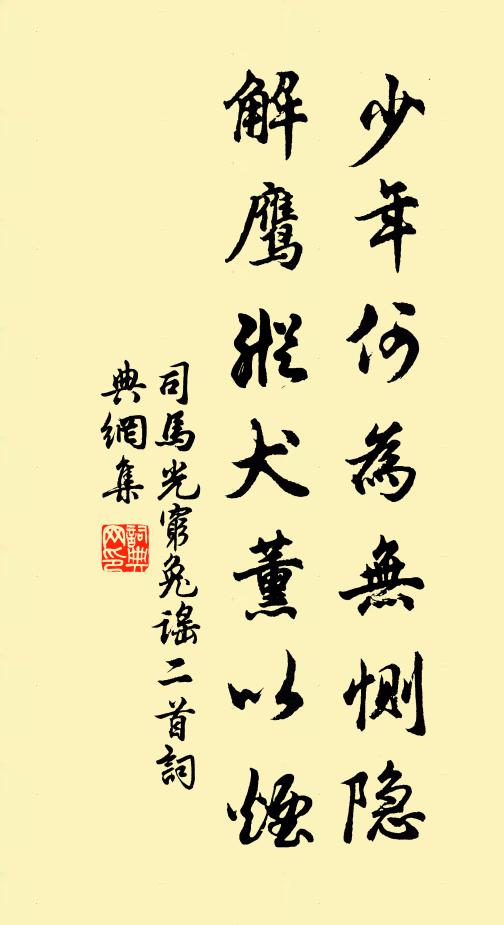 少年何為無惻隐
解鹰縱犬薰以煙
司馬光窮兔謠二首詞
典網集
詞典網印